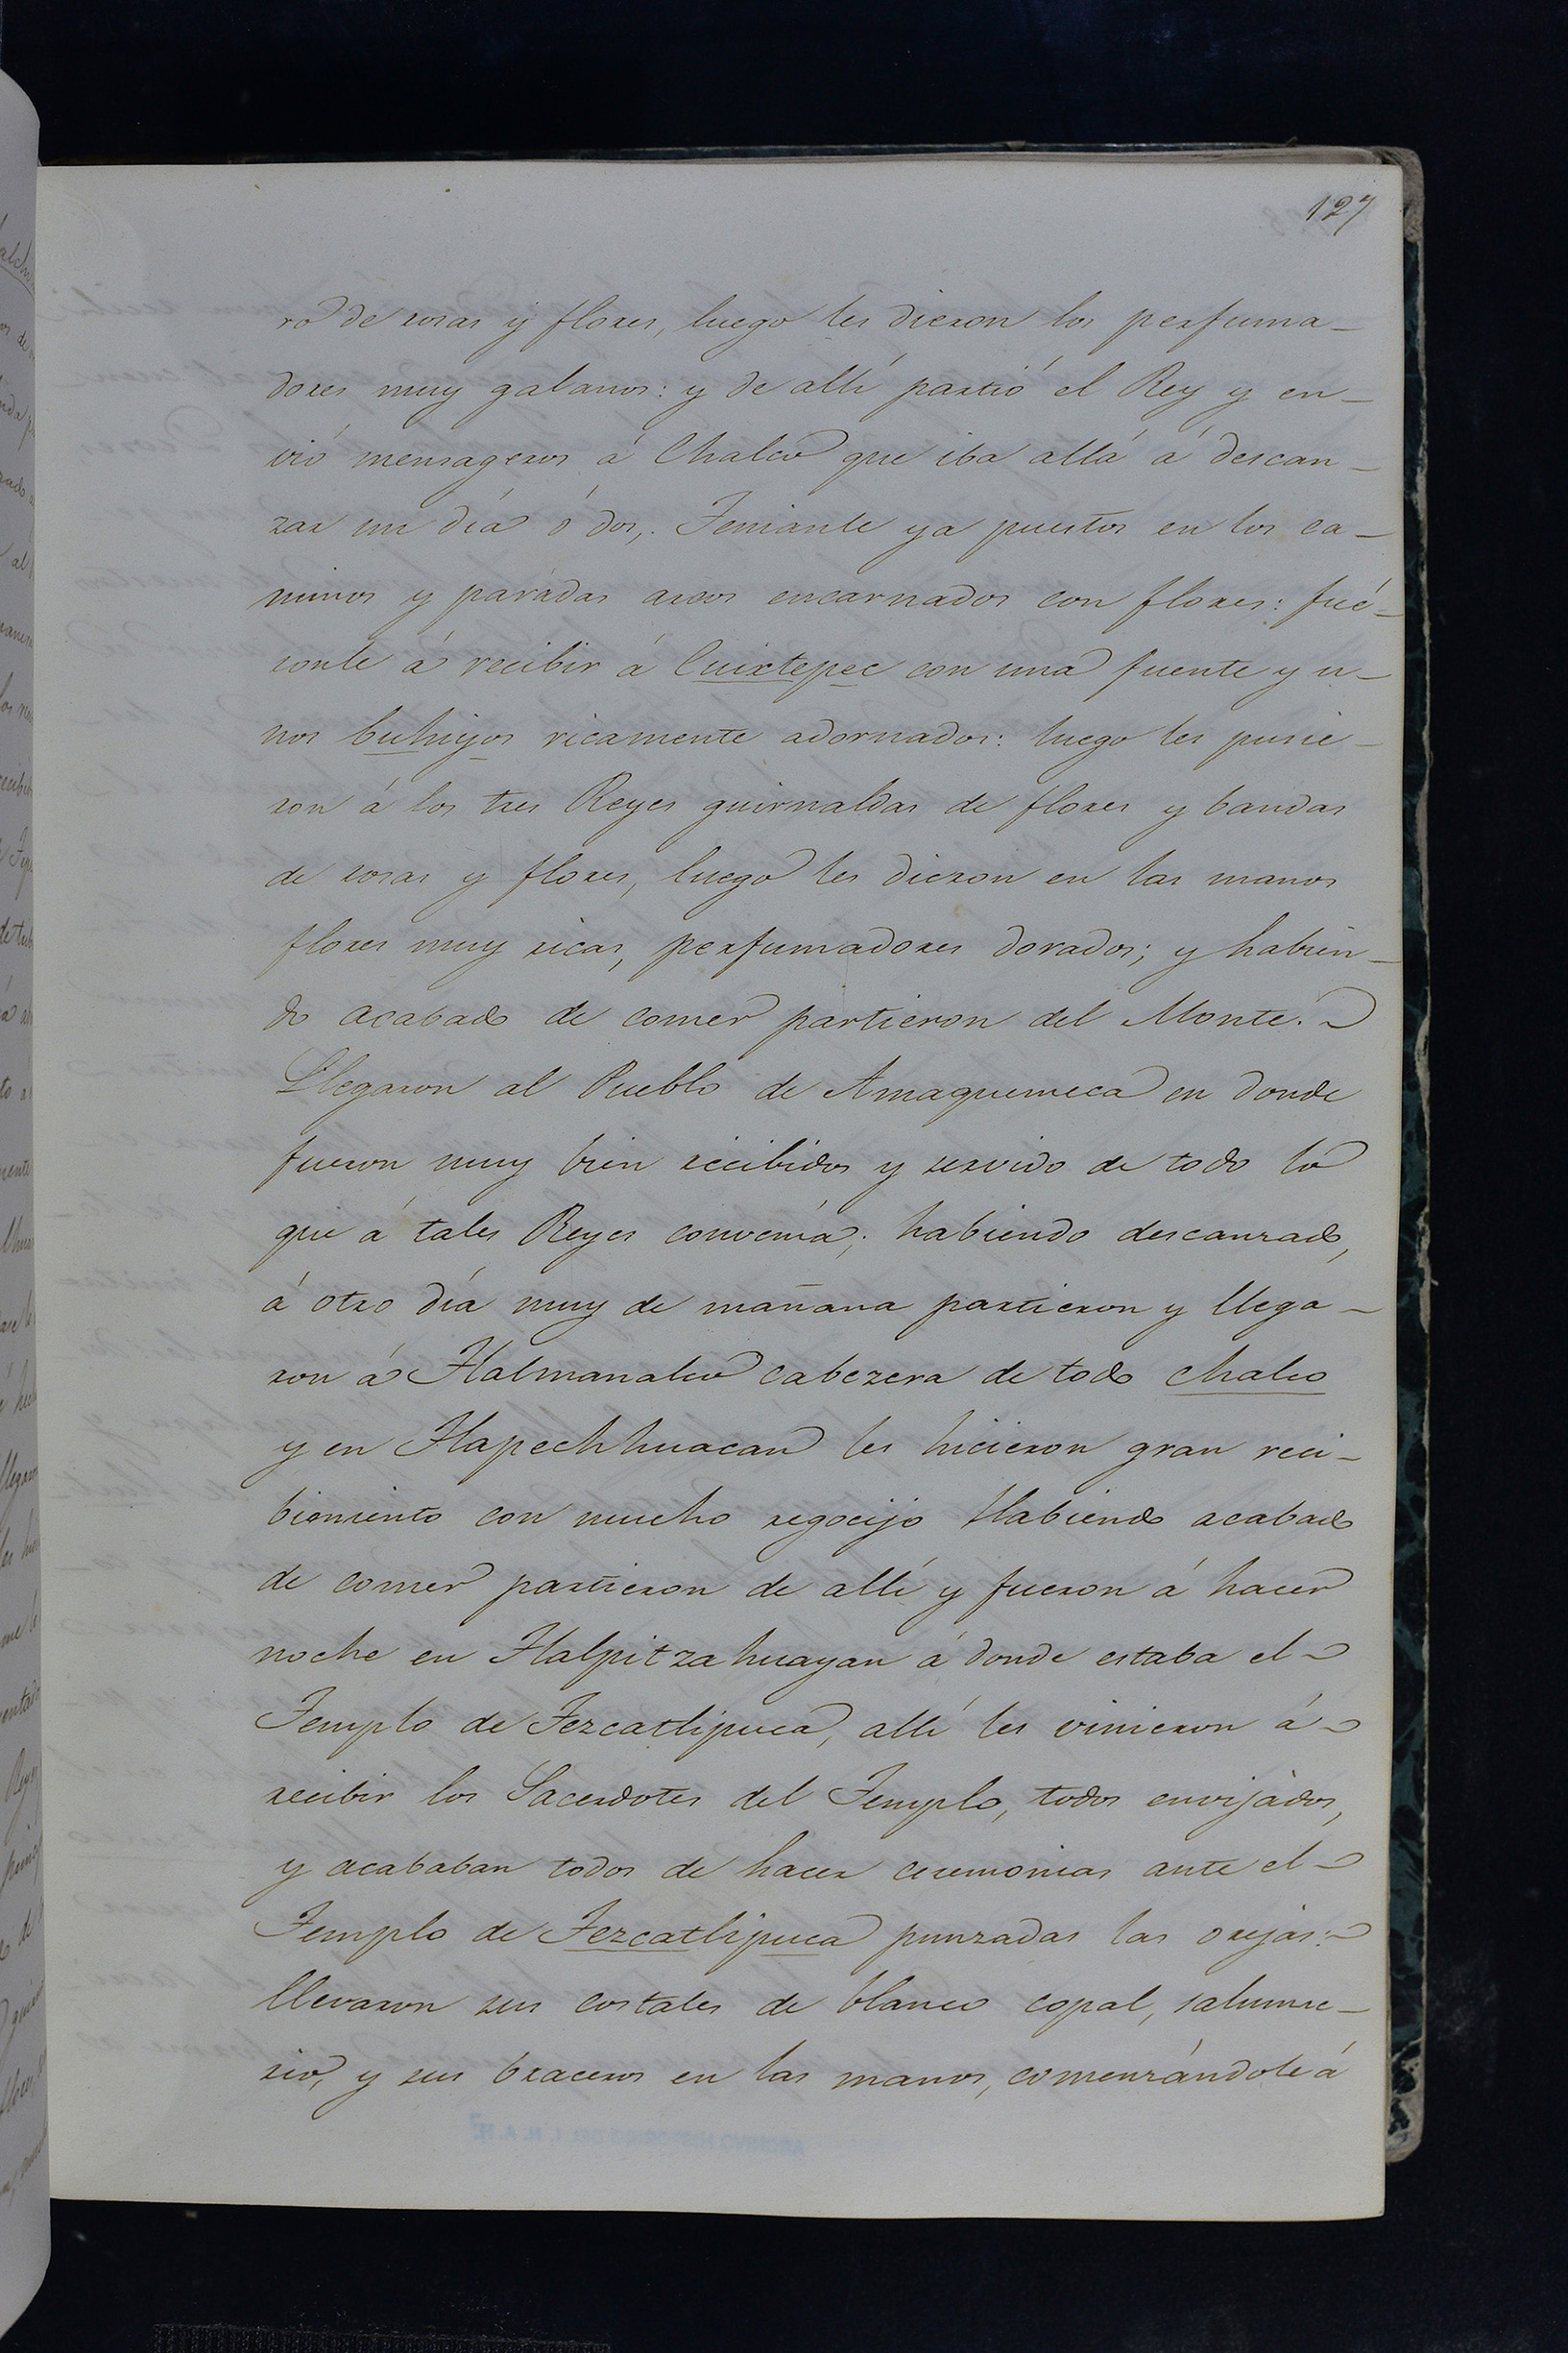 127
ro de rosas y flores, luego les dieron los perfuma-
dores muy galanos: y de allí partió el Rey y en-
vió mensageros á Chalco que iba allá á descan-
zar un día ó dos,. Teníanle ya puestos en los ca-
minos y paradas arcos encarnados con flores: fué-
ronle á recibir á Cuixtepec con una fuente y u-
nos buhiyos ricamente adornados: luego les pusie-
ron á los tres Reyes guirnaldas de flores y bandas
de rosas y flores, luego les dieron en las manos
flores muy ricas, perfumadores dorados; y habien-
do acabado de comer partieron del Monte.
Llegaron al Pueblo de Amaquemeca en donde
fueron muy bien recibidos y servido de todo lo
que á tales Reyes convenía; habiendo descanzado,
á otro día muy de mañana partieron y llega-
ron á Tlalmanalco cabezera de todo Chalco
y en Tlapechhuacan les hicieron gran reci-
bimiento con mucho regocijo Habiendo acabado
de comer partieron de allí y fueron á hacer
noche en Tlalpitzahuayan á donde estaba el
Templo de Tezcatlipuca, allí les vinieron á
recibir los Sacerdotes del Templo, todos envijados,
y acababan todos de hacer ceremonias ante el
Templo de Tezcatlipuca punzadas las orejas:
llevaron sus costales de blanco copal, sahume-
rio, y sus braceros en las manos, comenzándole á